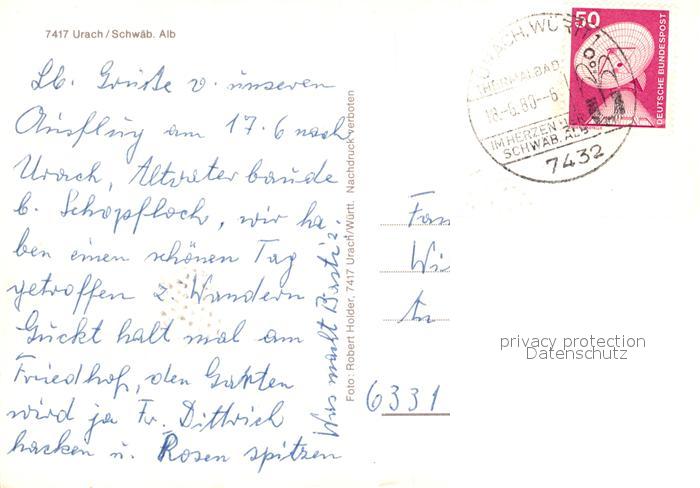 7417 Urach / Schwäb. Alb
Lb. Grüße v. unseren
Ausflug am 17.6 nach
Urach, Altvaterbaude
b. Schopfloch, wir ha
ben einen schönen Tag
getroffen z. Wandern
Guckt halt mal am
Friedhof, den Garten
wird ja Fr. Dittrich
hacken u. Rosen spitzen
Was macht Basti?
Foto: Robert Holder, 7417 Urach/Württ. Nachdruck verboten
50
DEUTSCHE BUNDESPOST
18.-6.80--6
IM HERZEN DER
SCHWÄB. ALB
7432
Fam
Wi
An
6331
privacy protection
Datenschutz